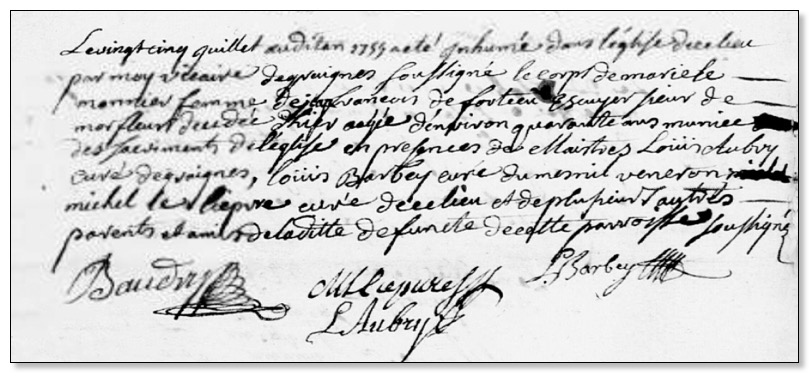 Le vingt cinq juillet audit an 1755 a eté Jnhumé dans l'église de ce lieu
par moy vicaire de graignes soussigné le corps de marie le
monnier femme de jean francois de fortecu Escuyer sieur de
morfleur decedée d'hier agée d'environ quarante ans munie
des sacrements de l'église en presences de Maistres Louis Aubry
curé de graignes, louis Barbey curé du mesnil veneron
michel le liepvre curé de ce lieu et de plusieurs autres
parents et amis de laditte defuncte de cette parroisse soussigné
Baudry MLeliepvre L Barbey
L Aubry